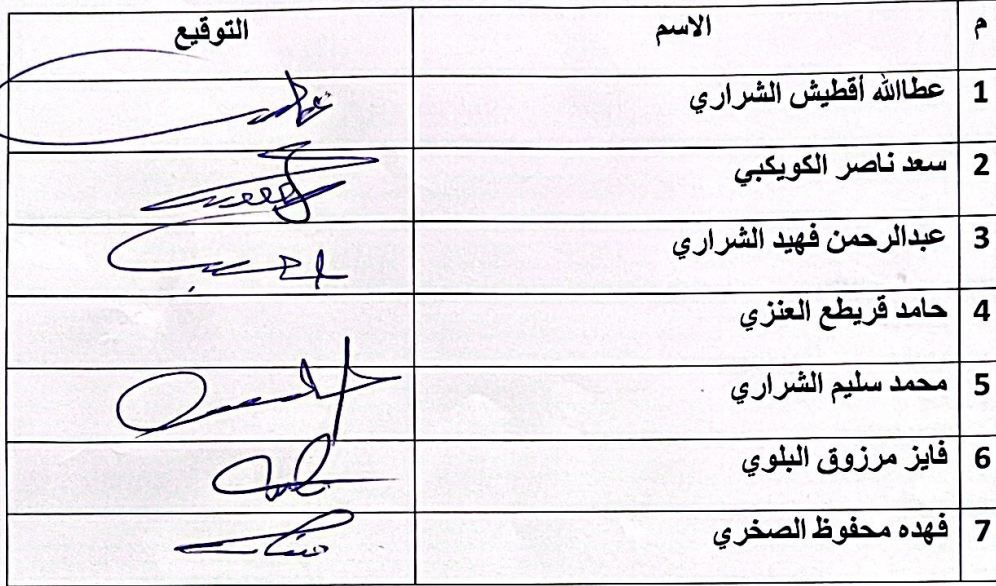 م الاسم التوقيع
1 عطاالله أقطيش الشراري
2 سعد ناصر الكويكبي
3 عبدالرحمن فهيد الشراري
4 حامد قريطع العنزي
5 محمد سليم الشراري
6 فايز مرزوق البلوي
7 فهده محفوظ الصخري